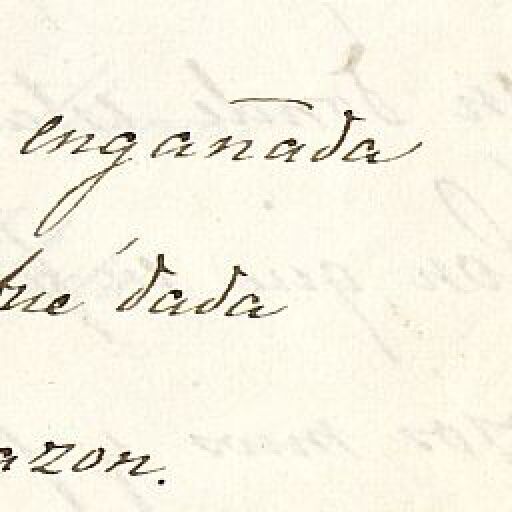 engañada
fué dada
azon.